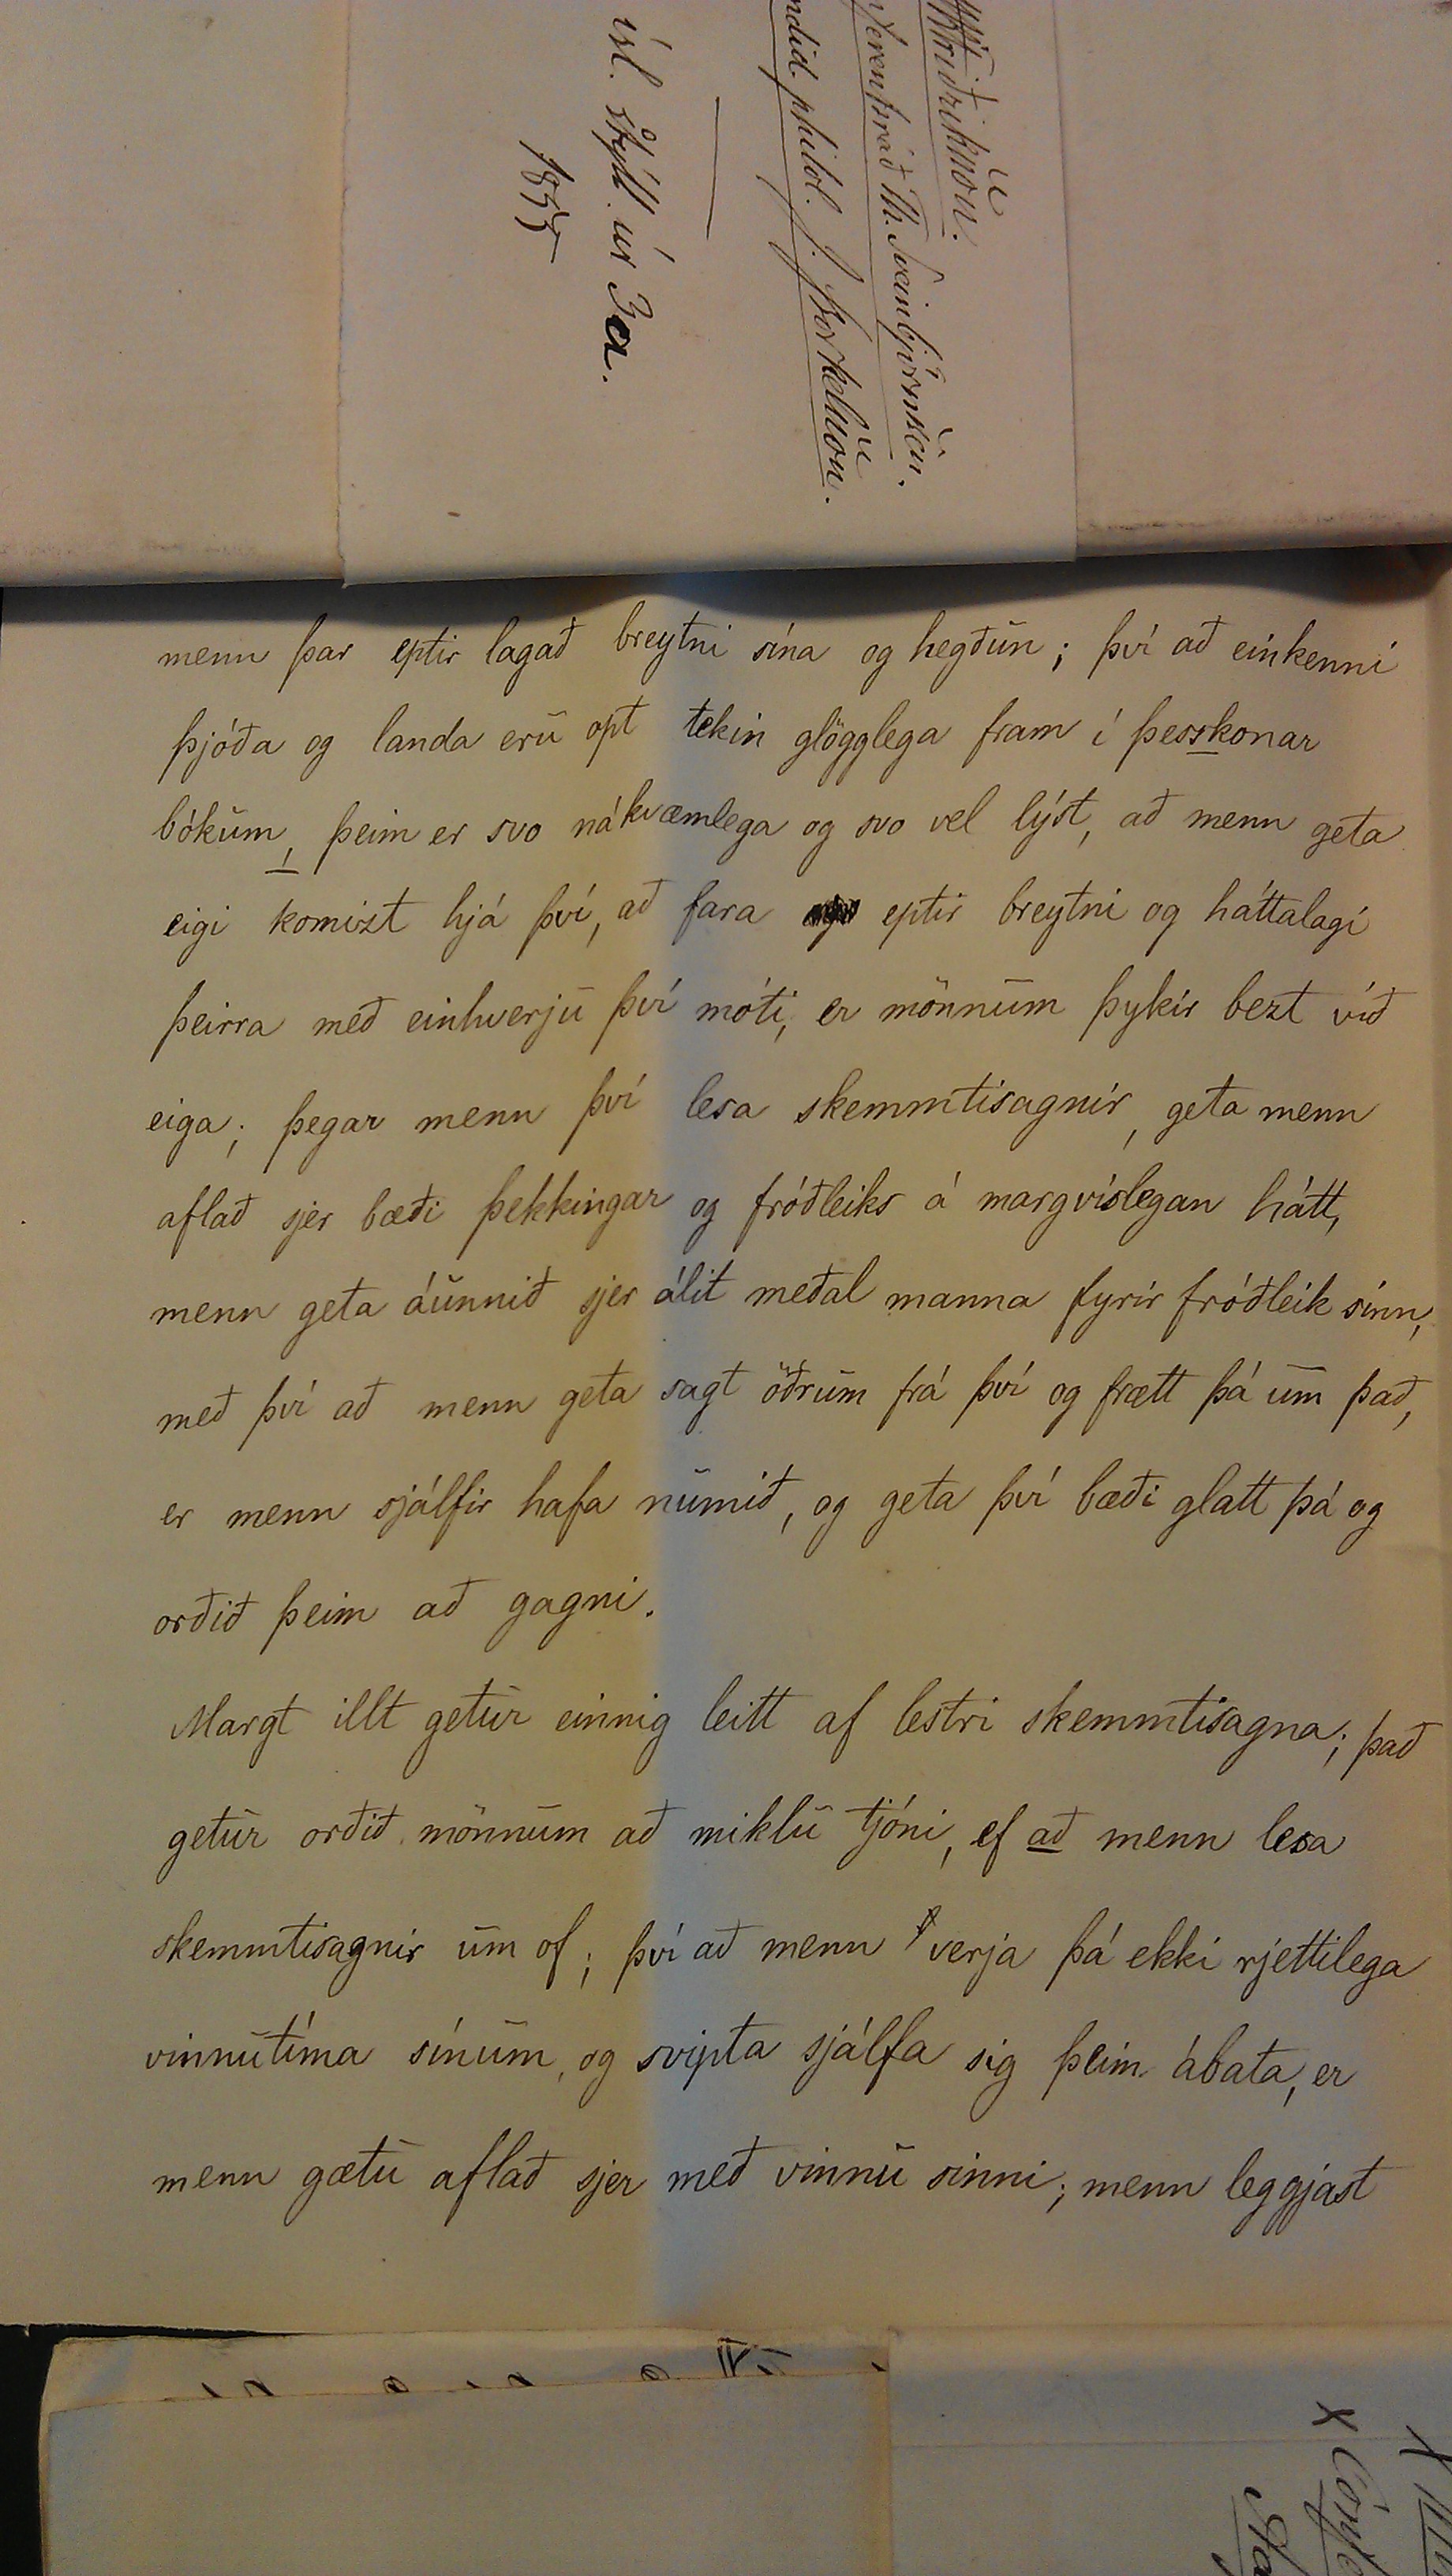 Th. Sveinbjörnsson.
philol. J. Þorkelsson.
ísl. stýll. úr 3a.
1855
menn þar eptir lagað breytni sína og hegðun; því að einkenni
þjóða og landa eru opt tekin glögglega fram í þesskonar
bókum, þeim er svo nákvæmlega og svo vel lýst, að menn geta
eigi komizt hjá því, að fara eptir breytni og háttalagi
þeirra með einhverju því móti, er mönnum þykir bezt við
eiga; þegar menn því lesa skemmtisagnir, geta menn
aflað sjer bæði þekkingar og fróðleiks á margvíslegan hátt,
menn geta áunnið sjer álit meðal manna fyrir fróðleik sinn,
með því að menn geta sagt öðrum frá því og frætt þá um það,
er menn sjálfir hafa numið, og geta því bæði glatt þá og
orðið þeim að gagni.
Margt illt getur einnig leitt af lestri skemmtisagna; það
getur orðið mönnum að miklu tjóni, ef að menn lesa
skemmtisagnir um of; því að menn verja þá ekki rjettilega
vinnutíma sínum, og svipta sjálfa sig þeim ábata, er
menn gætu aflað sjer með vinnu sinni; menn leggjast